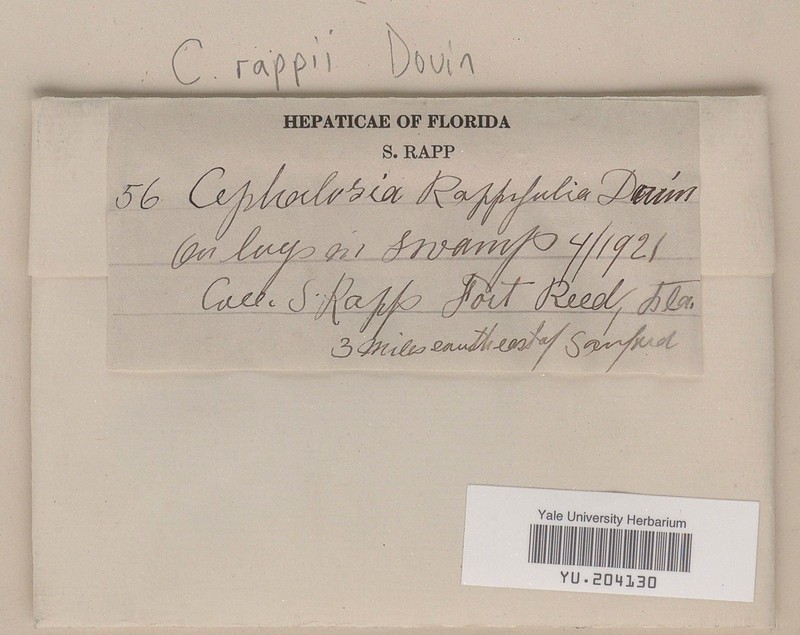 C. rappii Douin
HEPATICAE OF FLORIDA
S. RAPP
56 Cephalozia Douin
On logs in swamp 4/1921
Coll. S. Rapp Fort Reed, Fla.
3 miles southeast of Sanford
Yale University Herbarium
YU.204130